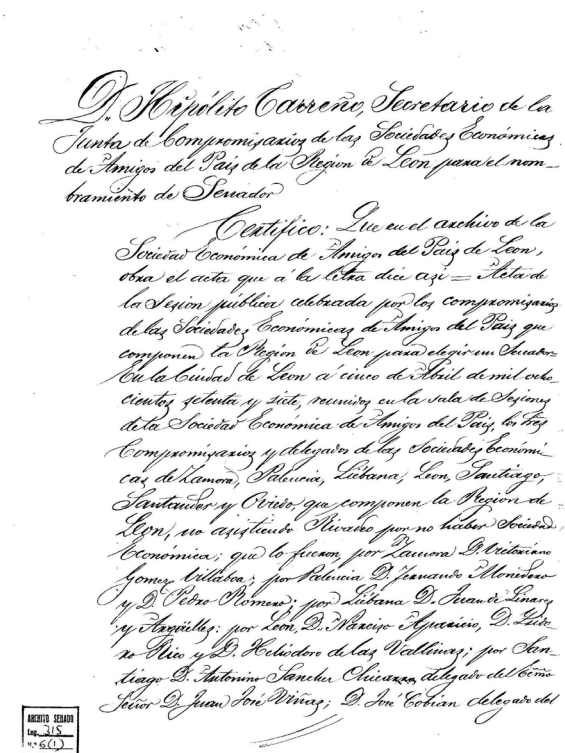 D. Hipólito Carreño, Secretario de la
Junta de Compromisarios de las Sociedades Económicas
de Amigos del País de la Region de Leon para el nom-
bramiento de Senador
Certifico: Que en el archivo de la
Sociedad Económica de Amigos del País de Leon,
obra el acta que á la letra dice asi = Acta de
la Sesion pública celebrada por los compromisarios
de las Sociedades Económicas de Amigos del Pais que
componen la Region de Leon para elegir un Senador=
En la Ciudad de Leon á cinco de Abril de mil ocho
cientos setenta y siete, reunidos en la sala de Sesiones
de la Sociedad Economica de Amigos del Pais, los tres
Compromisarios y delegados de las Sociedades Económi-
cas de Zamora, Palencia, Liébana, Leon, Santiago,
Santander y Oviedo, que componen la Region de
Leon, no asistiendo Rivadeo por no haber Sociedad
Económica; que lo fueron, por Zamora D. Victoriano
Gomez Villaboa; por Palencia D. Fernando Monedero
y D. Pedro Romero; por Liébana D. Juan de Linares
y Argüelles: por Leon, D. Narciso Aparicio, D. Isido-
ro Rico y D. Heliodoro de las Vallinas; por San-
tiago D. Antonino Sanchez delegado del Ecmo
Señor D. Juan José Viñas; D. José Cobian delegado del
ARCHIVO SENADO
Leg. 215
n.º 6(1)